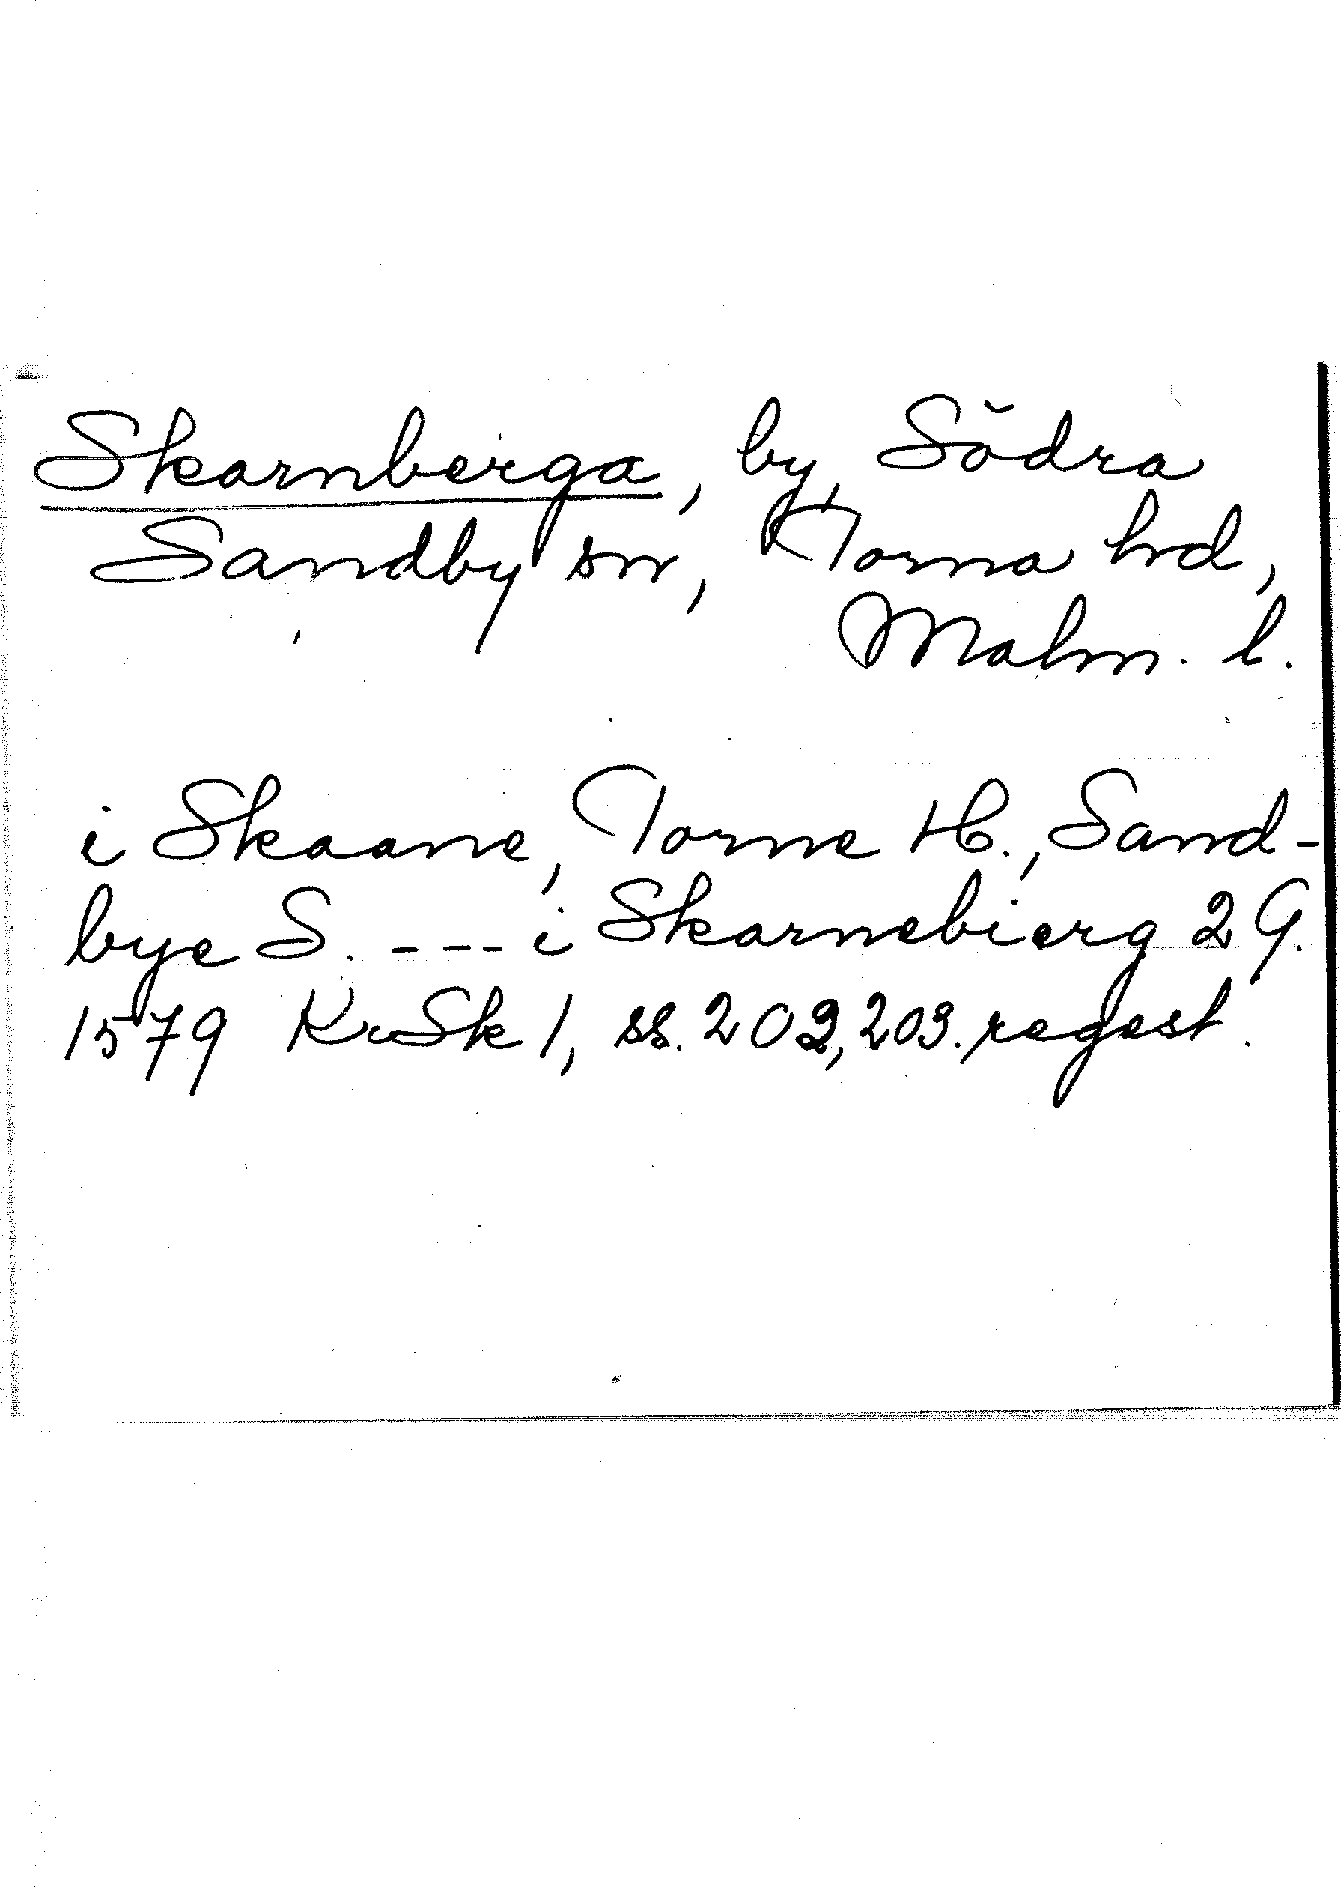 Skarnberga, by, Södra
Sandby sn, Torna hd,
Malm. l.
i Skaane, Torne H., Sand-
bye S. --- i Skarnebierg 2 G.
1579 KrSk 1, ss. 202, 203. regest.